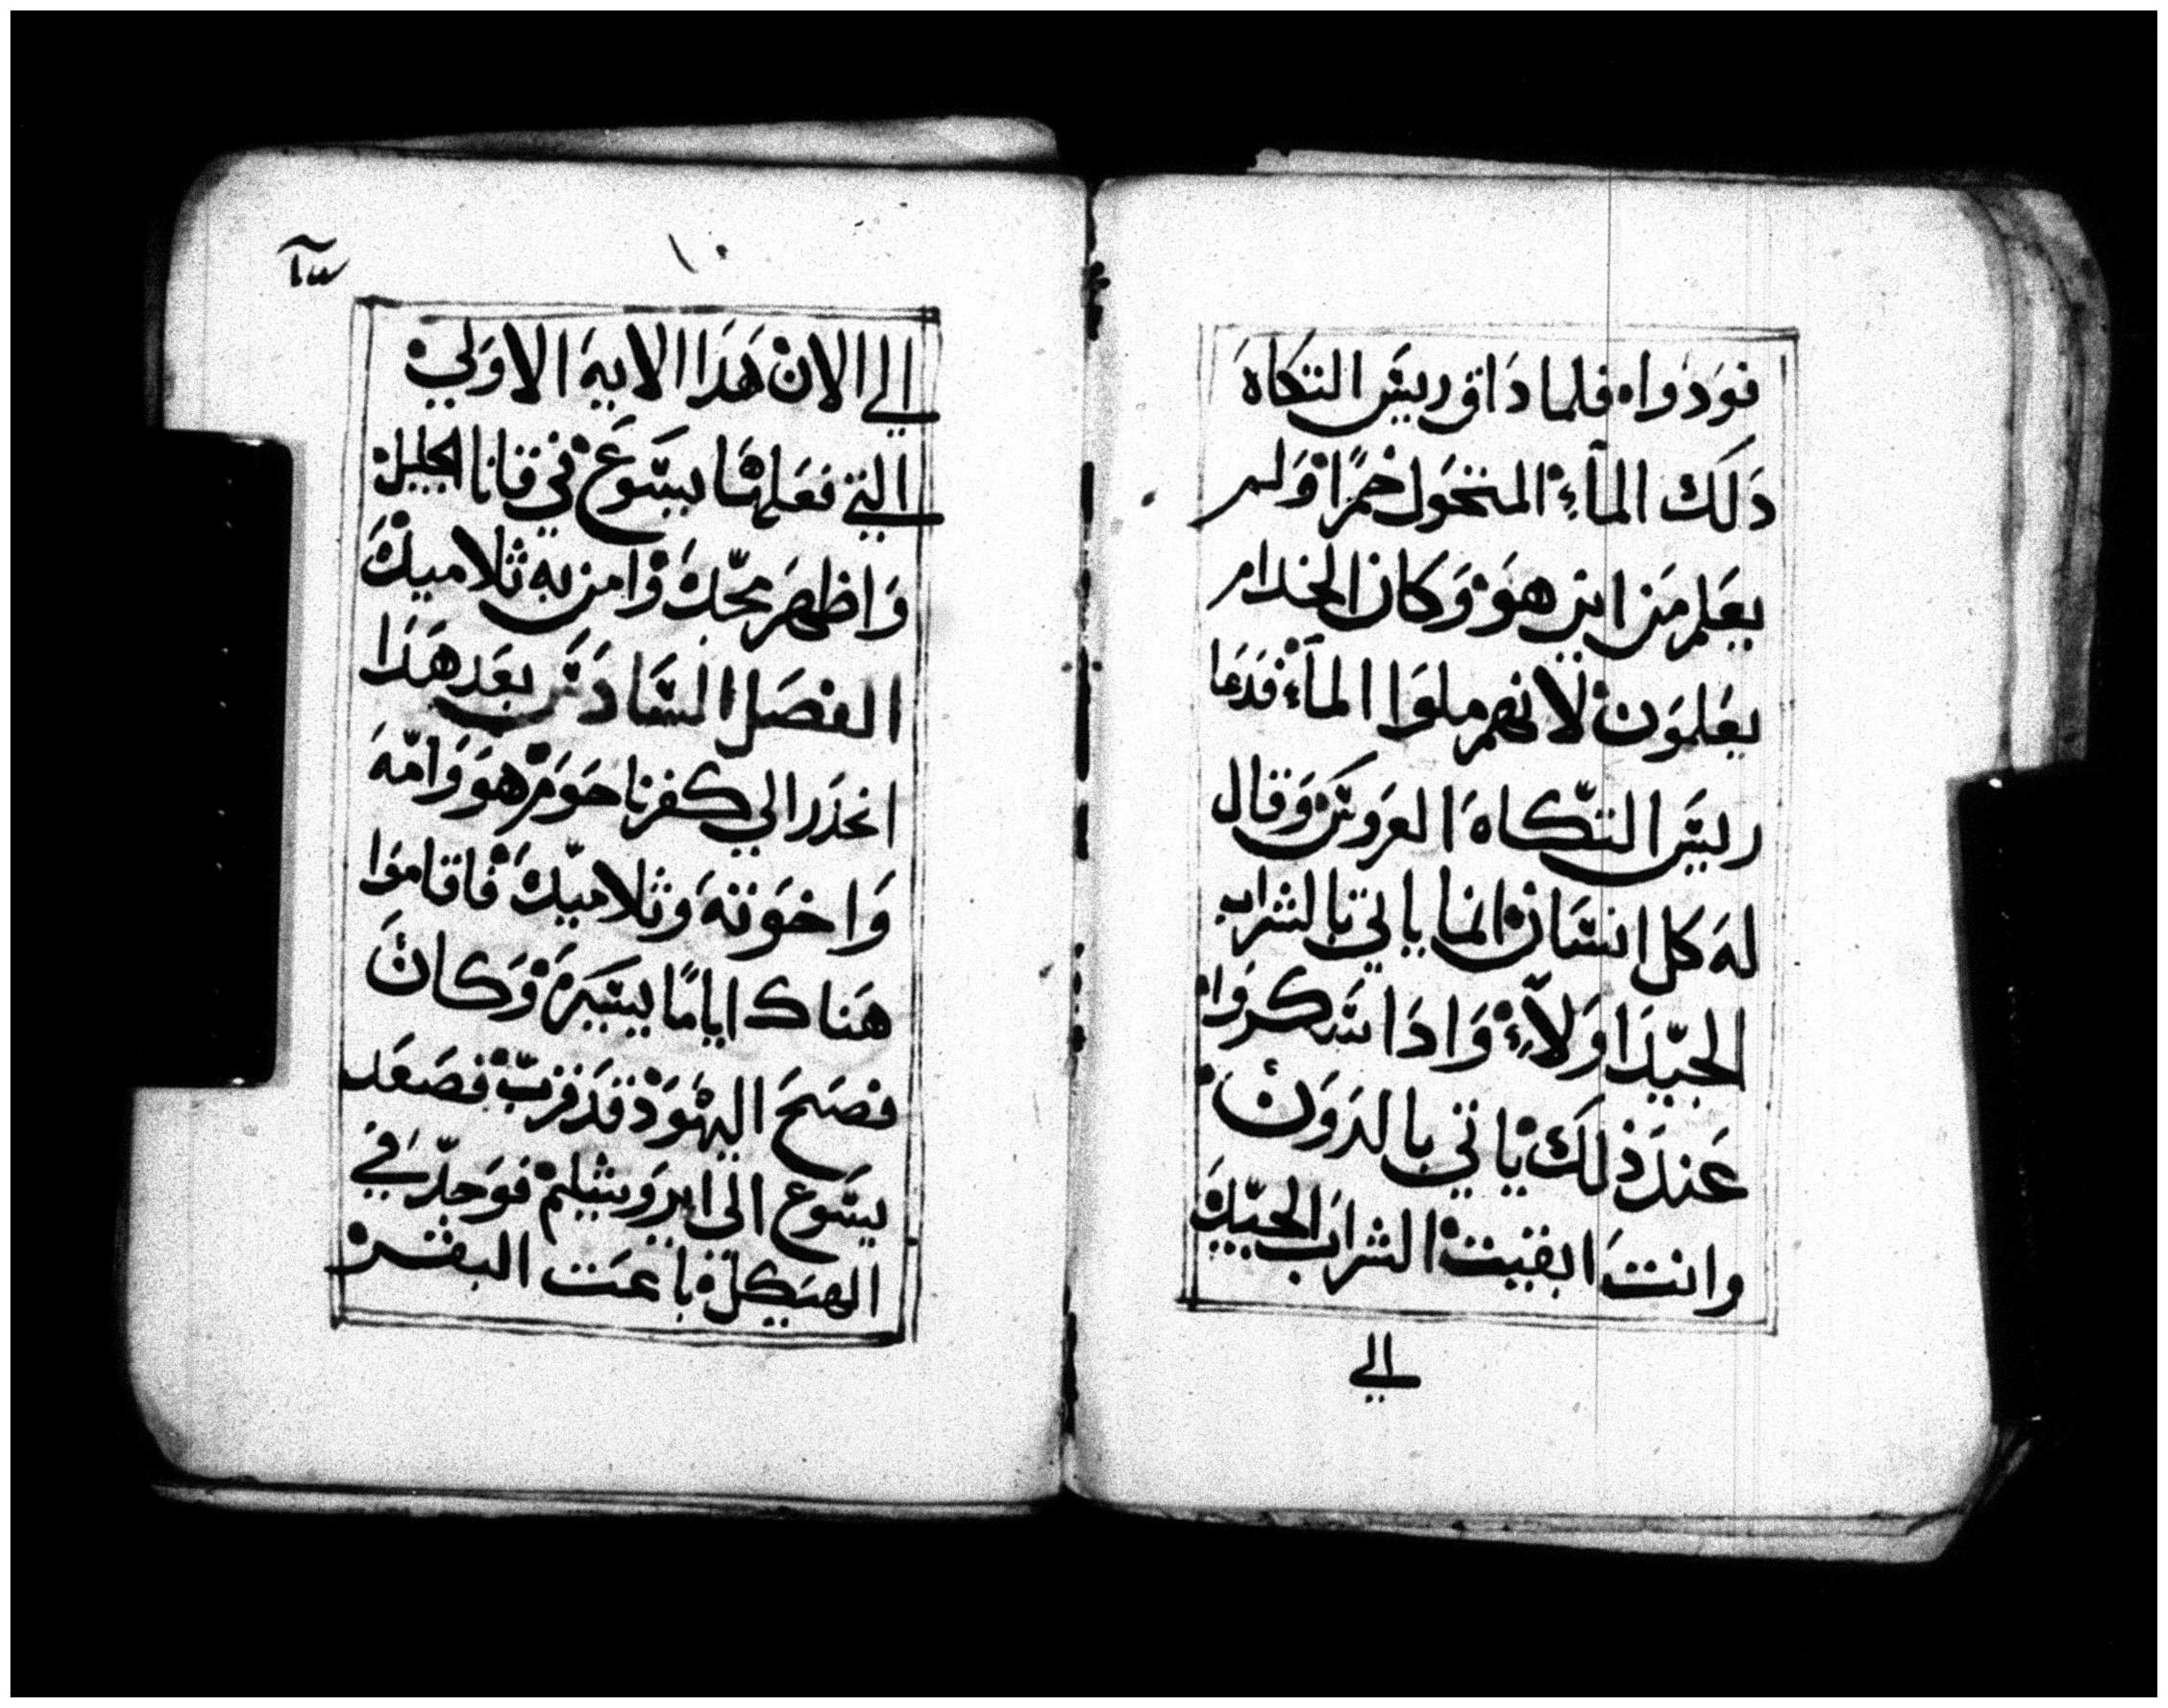 فودوا. فلما داق ريس التكاه
دَلَك المآء المتحَول خمرًا وَلم
يعَلم مَن اين هوَ وَكان الخدام
يعَلموَن لانهم ملوَا المآء فدَعا
ريسَ التكاه العروسَ وَقال
لهَ كل انسَان انما ياتي بالشراب
الجيّدَ اوَلآء وَادَا سَكروَا
عَندَ ذلَك ياتي بالدوَن
وانتَ ابقيت الشرابَ الجيّدَ
الي
١٠
الي الان هَدَا الايهَ الاوَلي
التي فعَلهَا يسَوَع في قانا الجليل
وَاظهرَ مجّدَهَ وَامن به ثلاميدَهَ
الفصَل السَادسَ بعَد هَدَا
انحدَر الي كفرناحوَم هوَ وَامّهَ
وَاخوَتهَ وَثلاميّدهَ فاقاموَا
هَناك ايامًا يسَيرَهَ وَكان
فصَحَ اليهَوَد قدَ قربّ فصَعَد
يسَوع الى ايروَشليم فوَجدّ في
الهيَكل باعَت البقر